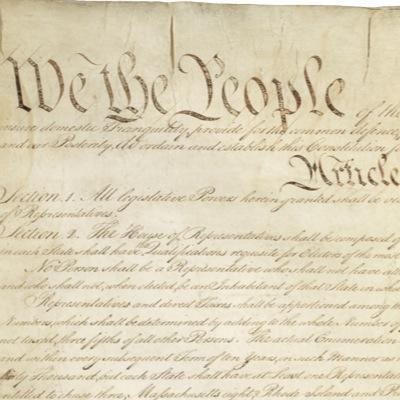 We the People of the
insure domestic Tranquility, provide for the common defence,
and our Posterity, do ordain and establish this Constitution for
Article
Section. 1. All legislative Powers herein granted shall be
of Representatives.
Section. 2. The House of Representatives shall be composed of
in each State shall have Qualifications requisite for Electors of the most
No Person shall be a Representative who shall not have
and who shall not, when elected, be an Inhabitant of that State in which
Representatives and direct Taxes shall be apportioned among the
Numbers, which shall be determined by adding to the whole Number of
not taxed, three fifths of all other Persons. The actual Enumeration
and within every subsequent Term of ten Years, in such Manner as
thirty Thousand, but each State shall have at Least one Representative
entitled to chuse three, Massachusetts eight, Rhode Island and